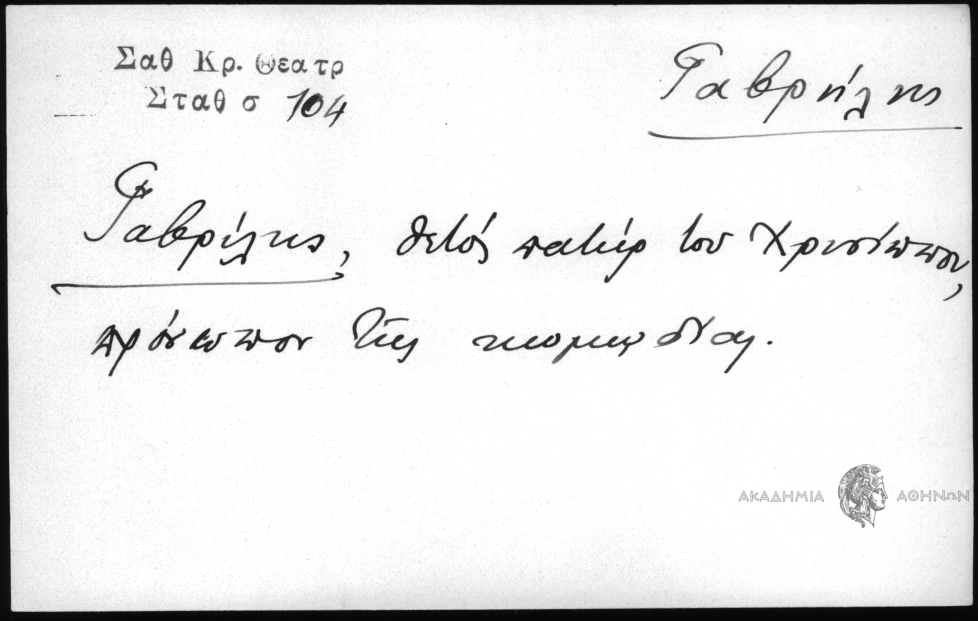 Σαθ Κρ. Θεατρ
Σταθ σ 104
Γαβρήλης
Γαβρίλης, θετός πατήρ του Χρυσίππου,
πρόσωπον της κωμῳδίας.
ΑΚΑΔΗΜΙΑ ΑΘΗΝΩΝ